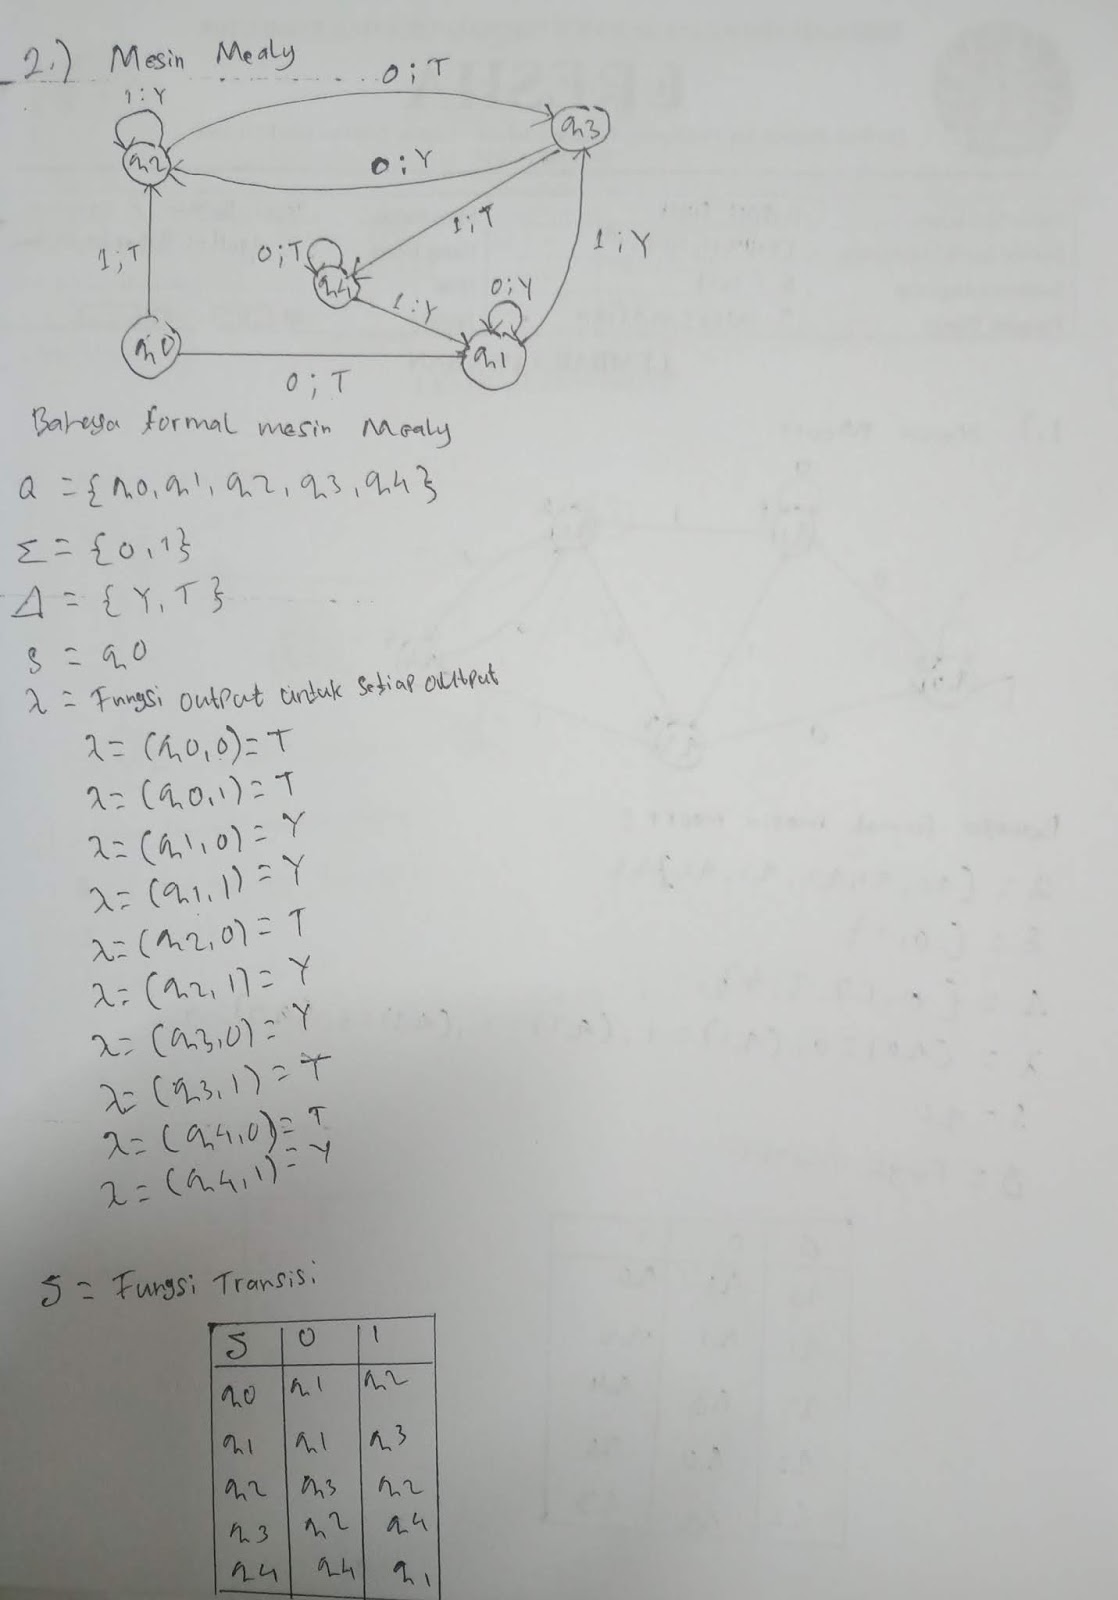 2.) Mesin Mealy
0;T
1:Y
q2
q3
0;Y
1;T
1;T
0;T
1;Y
q4
0;Y
1;Y
q0
q1
0;T
Bahasa formal mesin Mealy
Q = {q0, q1, q2, q3, q4}
Σ = {0,1}
Δ = {Y, T}
S = q0
λ = Fungsi output untuk setiap output
λ= (q0,0)= T
λ= (q0,1)= T
λ= (q1,0)= Y
λ= (q1,1)= Y
λ= (q2,0)= T
λ= (q2,1)= Y
λ= (q3,0)= Y
λ= (q3,1)= T
λ= (q4,0)= T
λ= (q4,1)= Y
δ = Fungsi Transisi
δ 0 1
q0 q1 q2
q1 q1 q3
q2 q3 q2
q3 q2 q4
q4 q4 q1